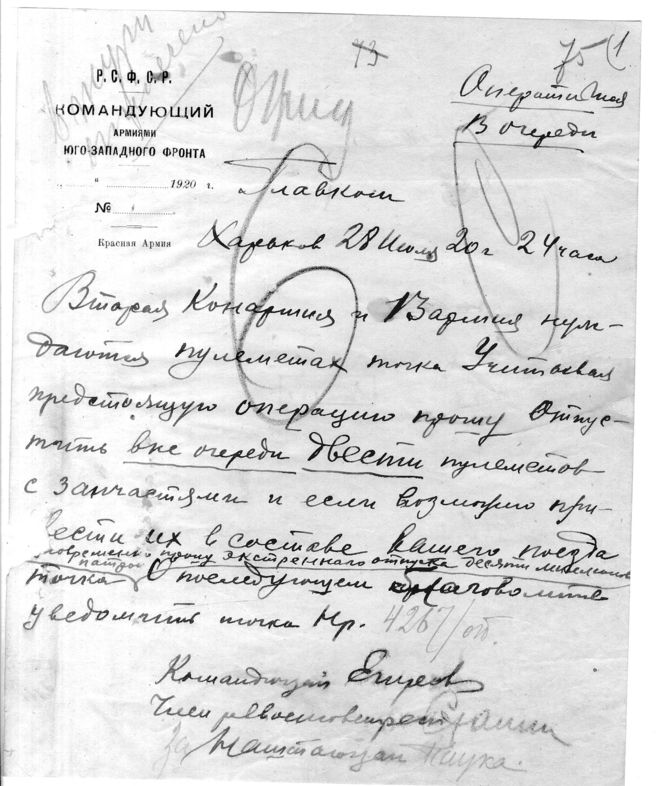 73
75 (1
Р. С. Ф. С. Р.
КОМАНДУЮЩИЙ
АРМИЯМИ
ЮГО-ЗАПАДНОГО ФРОНТА
„ " 1920 г.
№
Красная Армия
Оперативная
В очереди
Главком
Харьков 28 Июля 20 г 24 часа
Вторая Конармия и 13 армия нуж-
даются пулеметах точка Учитывая
предстоящую операцию прошу отпус-
тить вне очереди двести пулеметов
с запчастями и если возможно при-
вести их в составе вашего поезда
прошу экстренного отпуска десяти миллионов
патрон
точка О последующем благоволите
уведомить точка Нр. 4267/оп.
Командующий Егоров
Член реввоенсовета
За Наштаюзап Паука.